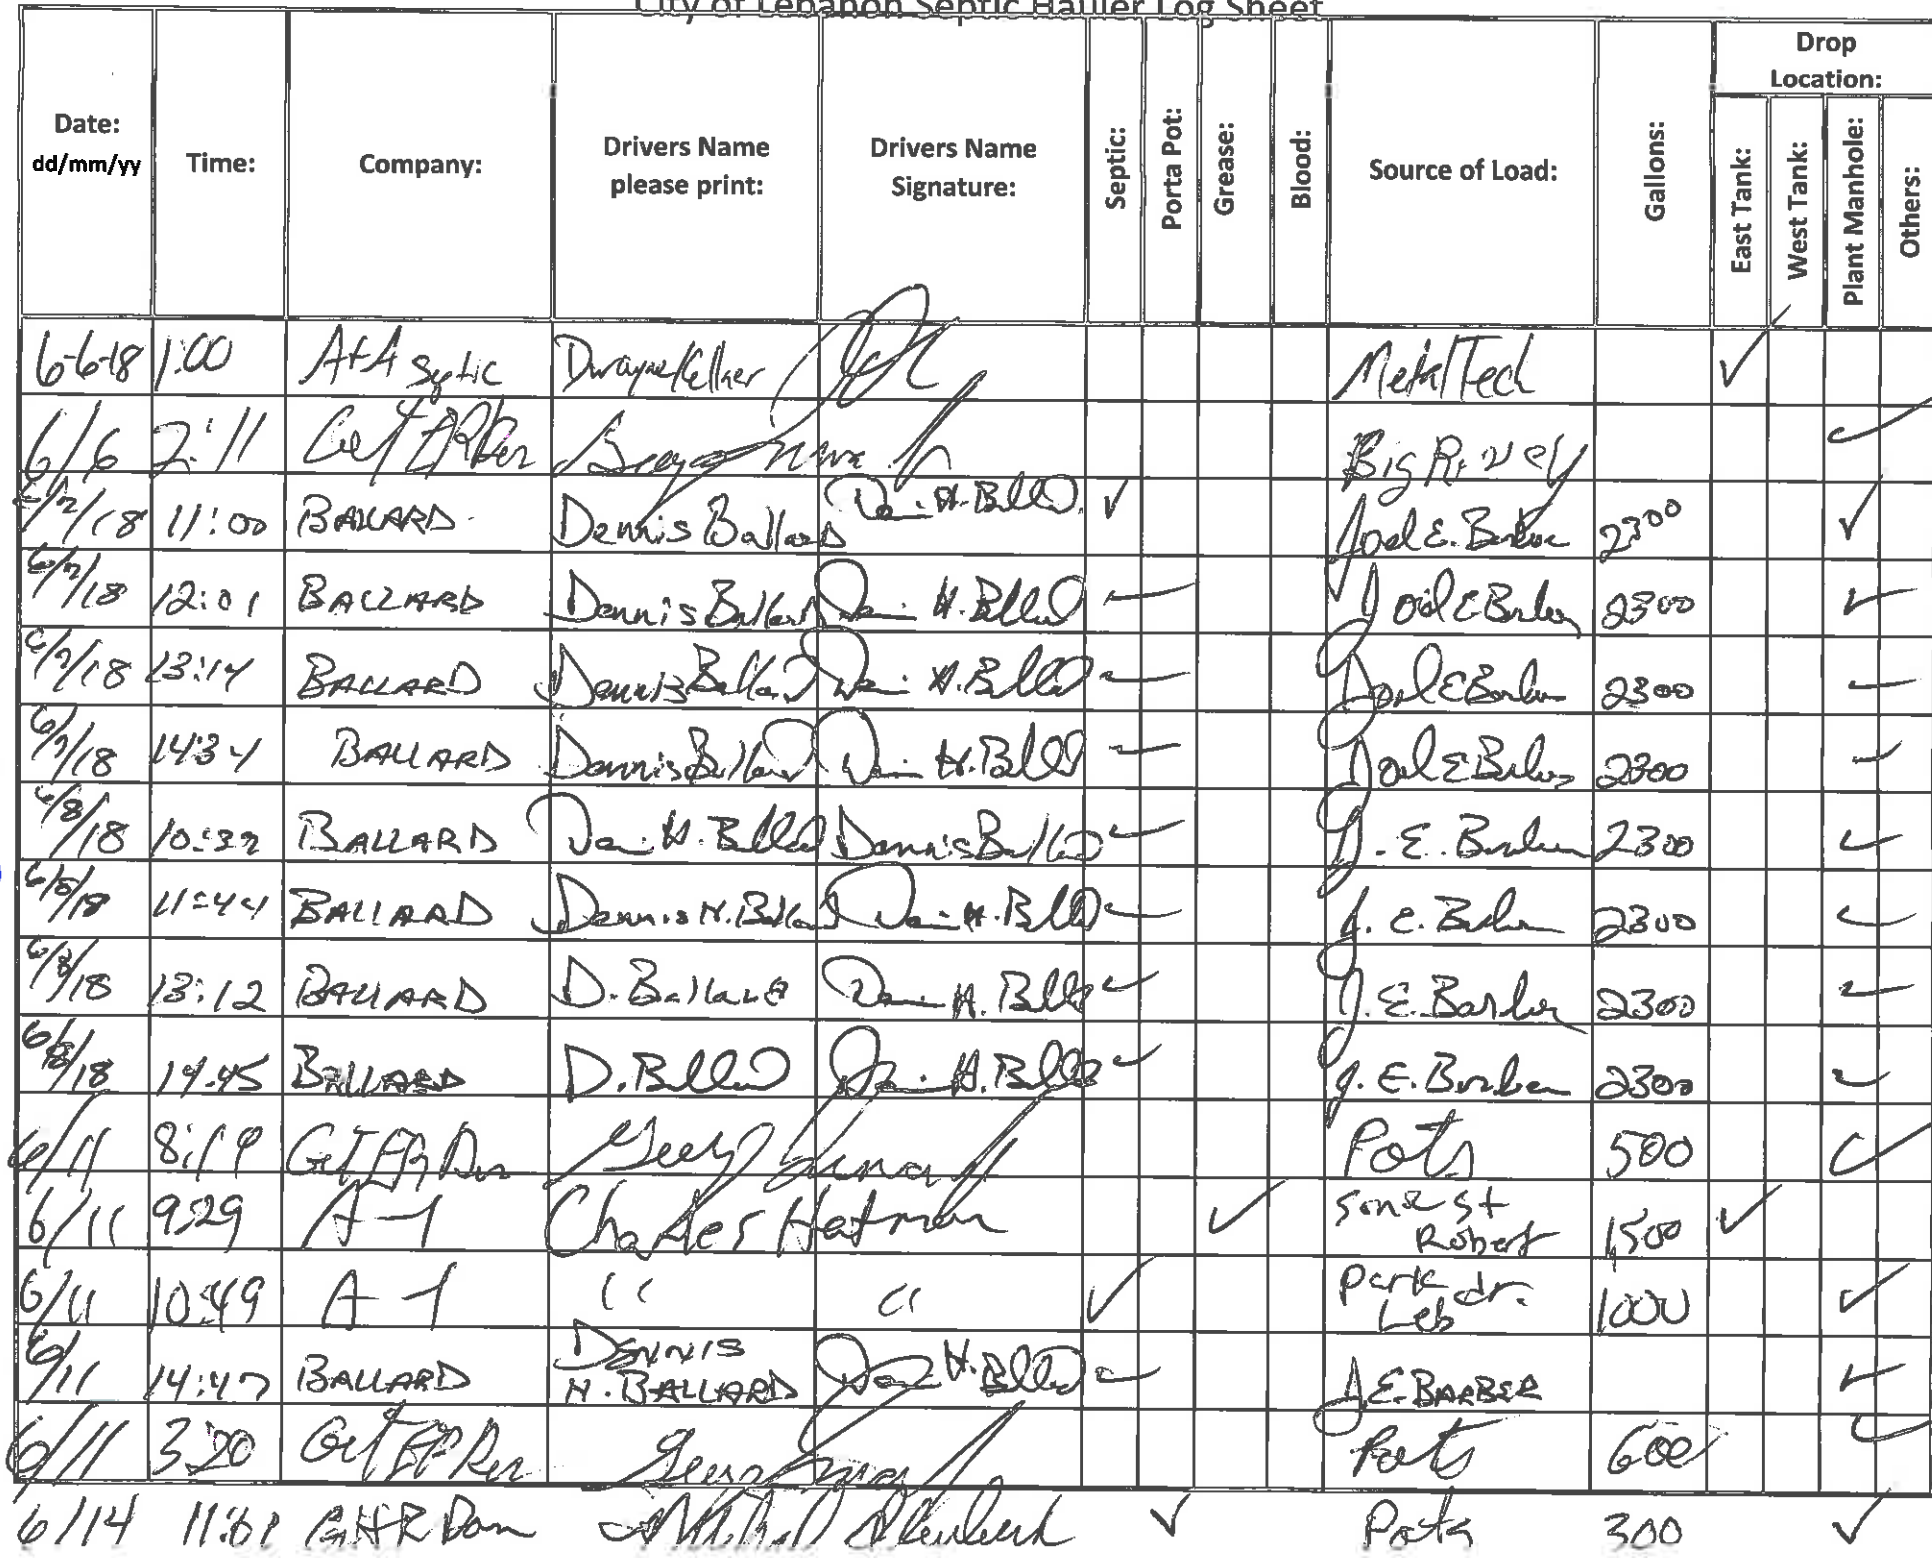 City of Lebanon Septic Hauler Log Sheet
Date: dd/mm/yy Time: Company: Drivers Name please print: Drivers Name Signature: Septic: Porta Pot: Grease: Blood: Source of Load: Gallons: Drop Location: East Tank: West Tank: Plant Manhole: Others:
6-6-18 1:00 A+A Septic Dwayne Kellner Metal Tech ✓
6/6 2:11 Big R ✓
6/7/18 11:00 BALLARD Dennis Ballard Dennis H. Ballard ✓ Joel E. Barber 2300 ✓
6/7/18 12:01 BALLARD Dennis Ballard Dennis H. Ballard ✓ Joel E Barber 2300 ✓
6/7/18 13:14 BALLARD Dennis Ballard Dennis H. Ballard ✓ Joel E Barber 2300 ✓
6/7/18 14:34 BALLARD Dennis Ballard Dennis H. Ballard ✓ Joel E Barber 2300 ✓
6/8/18 10:32 BALLARD Dennis H. Ballard Dennis Ballard ✓ J. E. Barber 2300 ✓
6/8/18 11:44 BALLARD Dennis H. Ballard Dennis H. Ballard ✓ J. E. Barber 2300 ✓
6/8/18 13:12 BALLARD D. Ballard Dennis H. Ballard ✓ J. E. Barber 2300 ✓
6/8/18 14:45 BALLARD D. Ballard Dennis H. Ballard ✓ J. E. Barber 2300 ✓
6/11 8:19 Pots 500 ✓
6/11 9:29 A-1 Charles Hatman ✓ St Robert 1500 ✓
6/11 10:49 A-1 " " ✓ Park dr. Leb 1000 ✓
6/11 14:47 BALLARD DENNIS H. BALLARD Dennis H. Ballard ✓ J. E. BARBER ✓
6/11 3:20 Pots 600 ✓
6/14 ✓ Pots 300 ✓